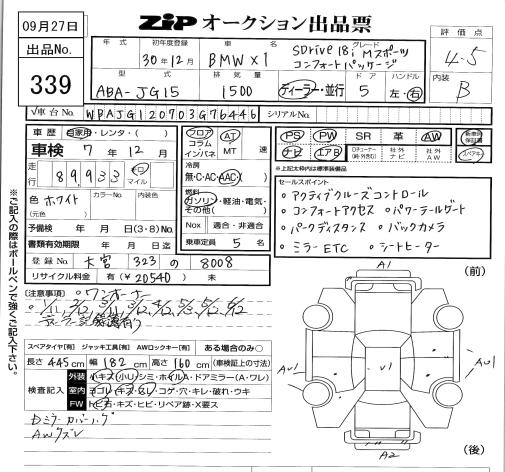 09月27日
ZIP オークション出品票
出品No.
339
年式 初年度登録 車名 グレード
30年12月 BMW X1 SDrive 18i Mスポーツ
コンフォートパッケージ
評価点
4.5
型式 排気量 ドア ハンドル
ABA-JG15 1500 ディーラー・並行 5 左・右
内装
B
√車台No. WBAJG120703G76446 シリアルNo.
車歴 自家用・レンタ・( )
車検 7年 12月
走行 89,933 キロ マイル
色 ホワイト カラーNo. 内装色
(元色)
予備検 年 月 日(3・8)No.
書類有効期限 年 月 日迄
登録No. 大宮 323 の 8008
リサイクル料金 有(¥20540) 未
フロア AT
コラム
インパネ MT 速
冷房
無・C・AC・AAC( )
燃料
ガソリン・軽油・電気・
その他( )
Nox 適合・非適合
乗車定員 5 名
PS PW SR 革 AW 新車時保証書
ナビ エアB Dチューナー 社外ナビ 社外AW スペアキー
※上記太枠内は標準装備品
セールスポイント
・アクティブクルーズコントロール
・コンフォートアクセス ・パワーテールゲート
・パークディスタンス ・バックカメラ
・ミラーETC ・シートヒーター
※ご記入の際はボールペンで強くご記入下さい。
(注意事項) ・ワンオーナー
スペアタイヤ[有] ジャッキ工具[有] AWロックキー[有] ある場合のみ○
長さ 445cm 幅 182cm 高さ 160cm (車検証上の寸法)
検査記入
外装 小キズ・小U・シミ・ホイルA・ドアミラー(A・ワレ)
室内 ヨゴレ・キズ・スレ・コゲ・穴・キレ・破れ・ウキ
FW トビ石・キズ・ヒビ・リペア跡・X要ス
Dミラーカバーハグ
AWズレ
A1 (前)
AW1 V1 AW1
A2 (後)